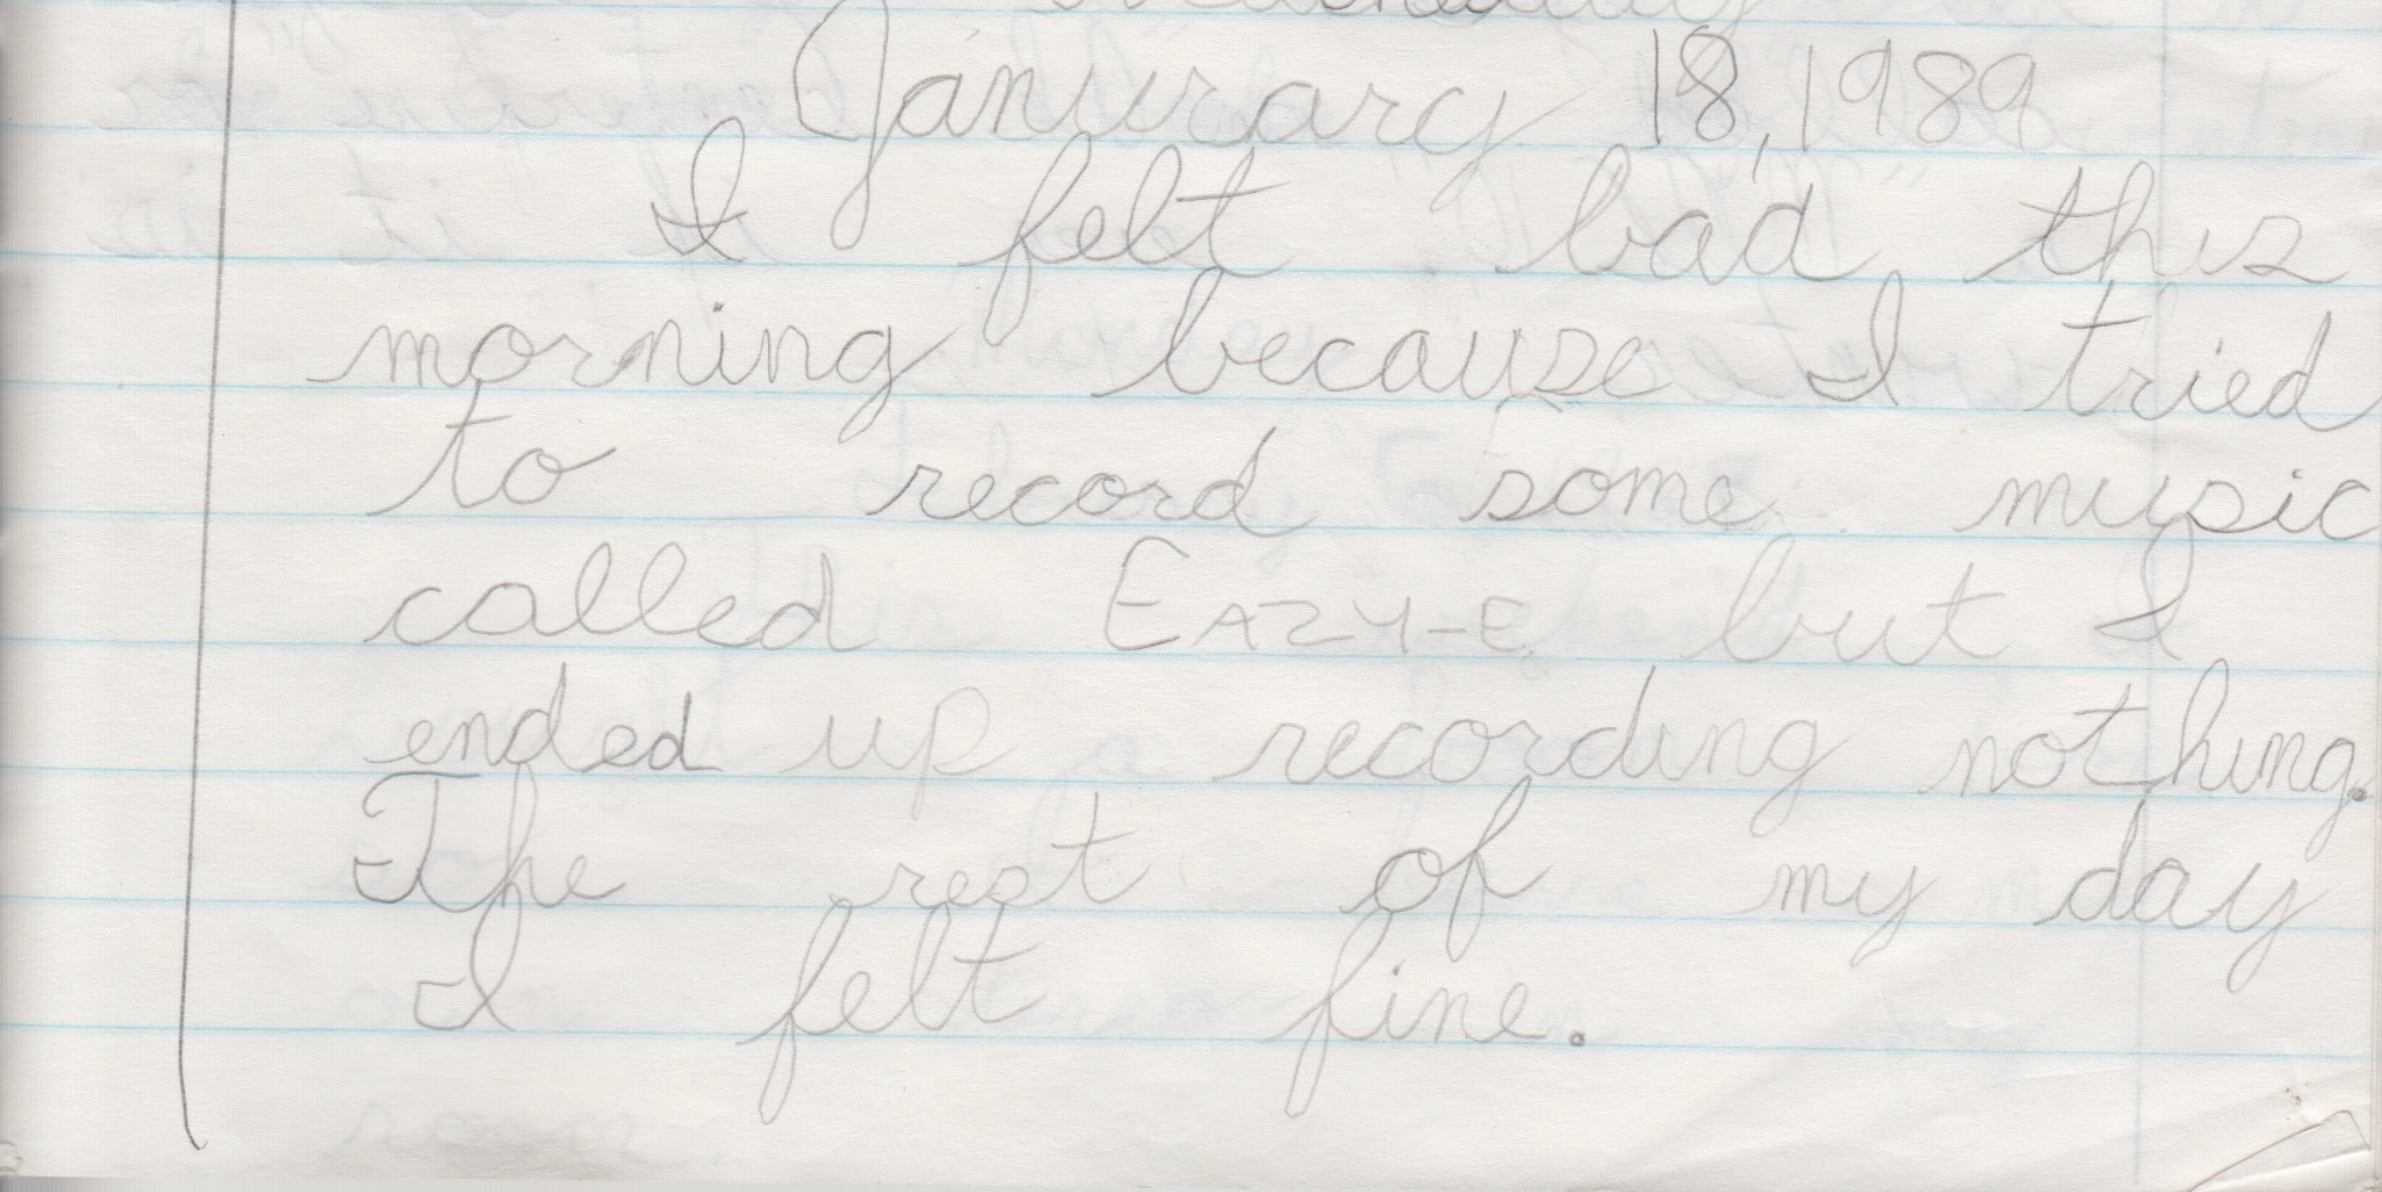 Janurary 18, 1989
I felt bad this
morning because I tried
to record some music
called EAZY-E but I
ended up recording nothing.
The rest of my day
I felt fine.